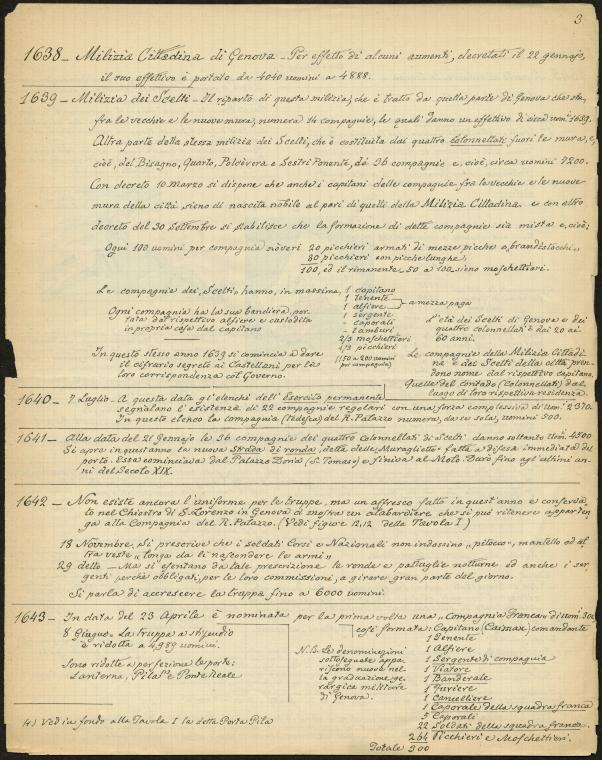 3
1638 – Milizia Cittadina di Genova – Per effetto di alcuni aumenti, decretati il 22 gennajo,
il suo effettivo è portato da 4040 uomini a 4888.
1639 – Milizia dei Scelti – Il riparto di questa milizia, che è tratto da quella parte di Genova che sta,
fra le vecchie e le nuove mura, numera 14 compagnie, le quali danno un effettivo di circa uom.ⁱ 1639.
Altra parte della stessa milizia dei Scelti, che è costituita dai quattro Colonnellati fuori le mura, e,
cioè, del Bisagno, Quarto, Polcevera e Sestri Ponente, dà 36 compagnie e, cioè, circa uomini 7200.
Con decreto 10 marzo si dispone che anche i capitani delle compagnie fra le vecchie e le nuove
mura della città sieno di nascita nobile al pari di quelli della Milizia Cittadina. e con altro
decreto del 30 Settembre si stabilisce che la formazione di dette compagnie sia mista e, cioè;
Ogni 100 uomini per compagnia v'averi 20 picchieri armati di mezze picche o „brandistocchi„
80 picchieri con picche lunghe,
100, ed il rimanente, 50 a 100, sieno moschettieri.
Le compagnie dei „Scelti„ hanno, in massima, 1 capitano
1 tenente
1 alfiere } a mezza paga
1 sergente
– caporali
– tamburi
2/3 moschettieri
1/3 picchieri
(150 a 200 uomini
per compagnia)
Ogni compagnia ha la sua bandiera, por-
tata dal rispettivo alfiere e custodita
in propria casa dal capitano
In questo stesso anno 1639 si comincia a dare
il cifrario segreto ai Castellani per la
loro corrispondenza col Governo.
L'età dei Scelti di Genova e dei
quattro colonnellati è dai 20 ai
60 anni.
Le compagnie della Milizia Cittadi-
na e dei Scelti della città pren-
dono nome dal rispettivo capitano,
Quelle del contado (Colonnellati) dal
luogo di loro rispettiva residenza.
1640 – 7 Luglio. A questa data gli elenchi dell'Esercito permanente
segnalano l'esistenza di 22 compagnie regolari con una forza complessiva di uom.ⁱ 2370.
In questo elenco la compagnia (tedesca) del R. Palazzo numera, da se sola, uomini 300.
1641 – Alla data del 21 Gennajo le 36 compagnie dei quattro Colonnellati di Scelti danno soltanto Uom.ⁱ 4500
Si apre in quest'anno la nuova strada di ronda, detta delle Muragliette, fatta a difesa immediata del
porto. Essa cominciava dal Palazzo Doria (S. Tomaso) e finiva al Molo. Durò fino agli ultimi an-
ni del Secolo XIX.
1642 – Non esiste ancora l'uniforme per le truppe, ma un affresco fatto in quest'anno e conserva-
to nel Chiostro di S. Lorenzo in Genova ci mostra un alabardiere che si può ritenere apparten-
ga alla Compagnia del R. Palazzo. (Vedi figure 12,12 della Tavola I)
18 Novembre, Si prescrive che i soldati Corsi e Nazionali non indossino „pitocco„ mantello od al-
tra veste „longa da li nascondere le armi„
29 detto – Ma si esentano da tale prescrizione le ronde e pattuglie notturne ed anche i ser-
genti perchè obbligati, per le loro commissioni, a girare gran parte del giorno.
Si parla di accrescere la truppa fino a 6000 uomini.
1643 – In data del 23 Aprile è nominata per la prima volta una „Compagnia Franca„ di uom.ⁱ 300
8 Giugno. La truppa a stipendio
è ridotta a 4989 uomini.
Sono ridotte a perfezione le porte:
Lanterna, Pila⁽¹⁾ e Ponte Reale
N.B. Le denominazioni
sottosegnate appa-
riscono nuove nel-
la graduazione ge-
rarchica militare
di Genova.
così formata: Capitano (Carnax) comandante
1 Tenente
1 Alfiere
1 Sergente di compagnia
1 Viatore
1 Banderale
1 Furiere
1 Cancelliere
1 Caporale della squadra franca
5 Caporali
22 Soldati della squadra franca.
264 Picchieri e Moschettieri.
Totale 300
(1) Vedi a fondo alla Tavola I la detta Porta Pila